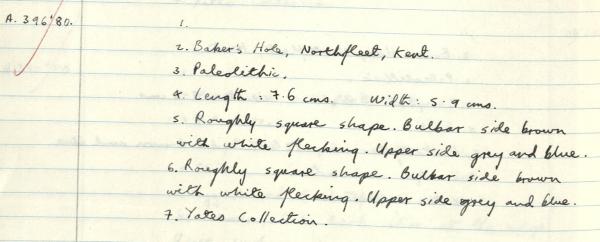 A.396'80.
1.
2. Baker's Hole, Northfleet, Kent.
3. Paleolithic.
4. Length : 7.6 cms. Width : 5.9 cms.
5. Roughly square shape. Bulbar side brown
with white flecking. Upper side grey and blue.
6. Roughly square shape. Bulbar side brown
with white flecking. Upper side grey and blue.
7. Yates Collection.